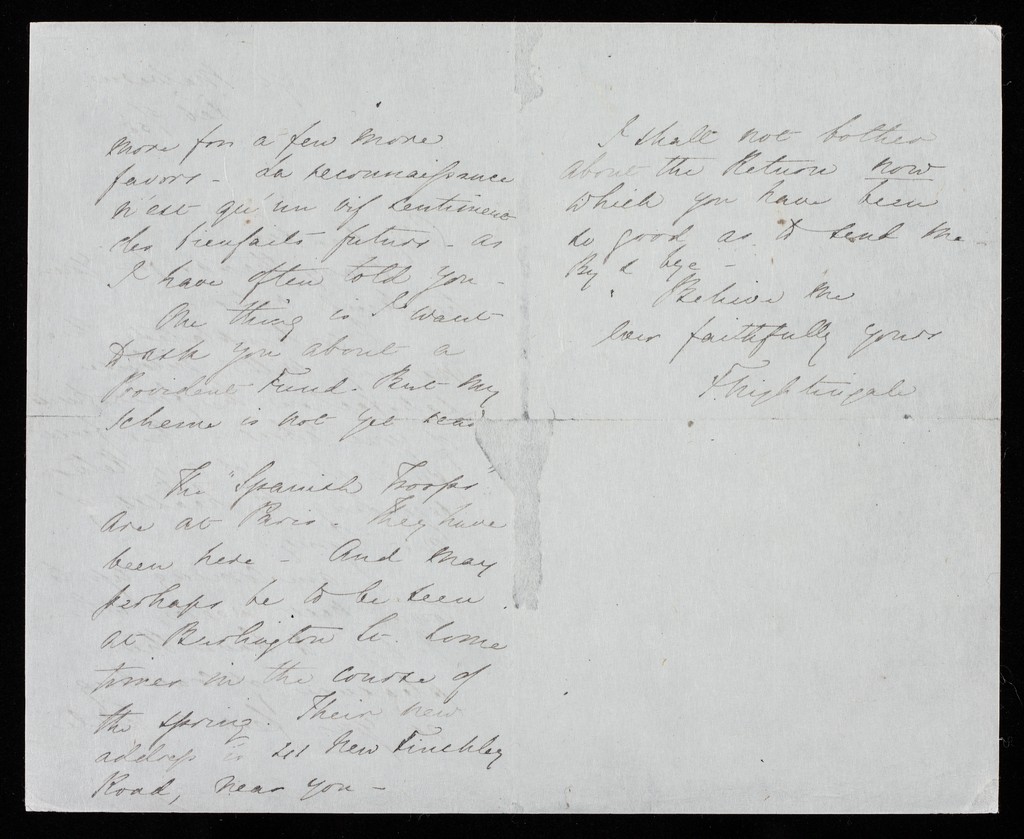 more for a few more
favors - La reconnaissance
n'est qu'un vif sentiment
des bienfaits futurs - as
I have often told you -
One thing is I want
to ask you about a
Provident Fund. But my
scheme is not yet
The "Spanish Troops"
are at Paris - They have
been here - And may
perhaps be to be seen
at Burlington St. some
times in the course of
the spring. Their new
address is New Finchley
Road, near you -
I shall not bother
about the Return now
which you have been
so good as to send me
By & bye -
Believe me
ever faithfully yours
F. Nightingale